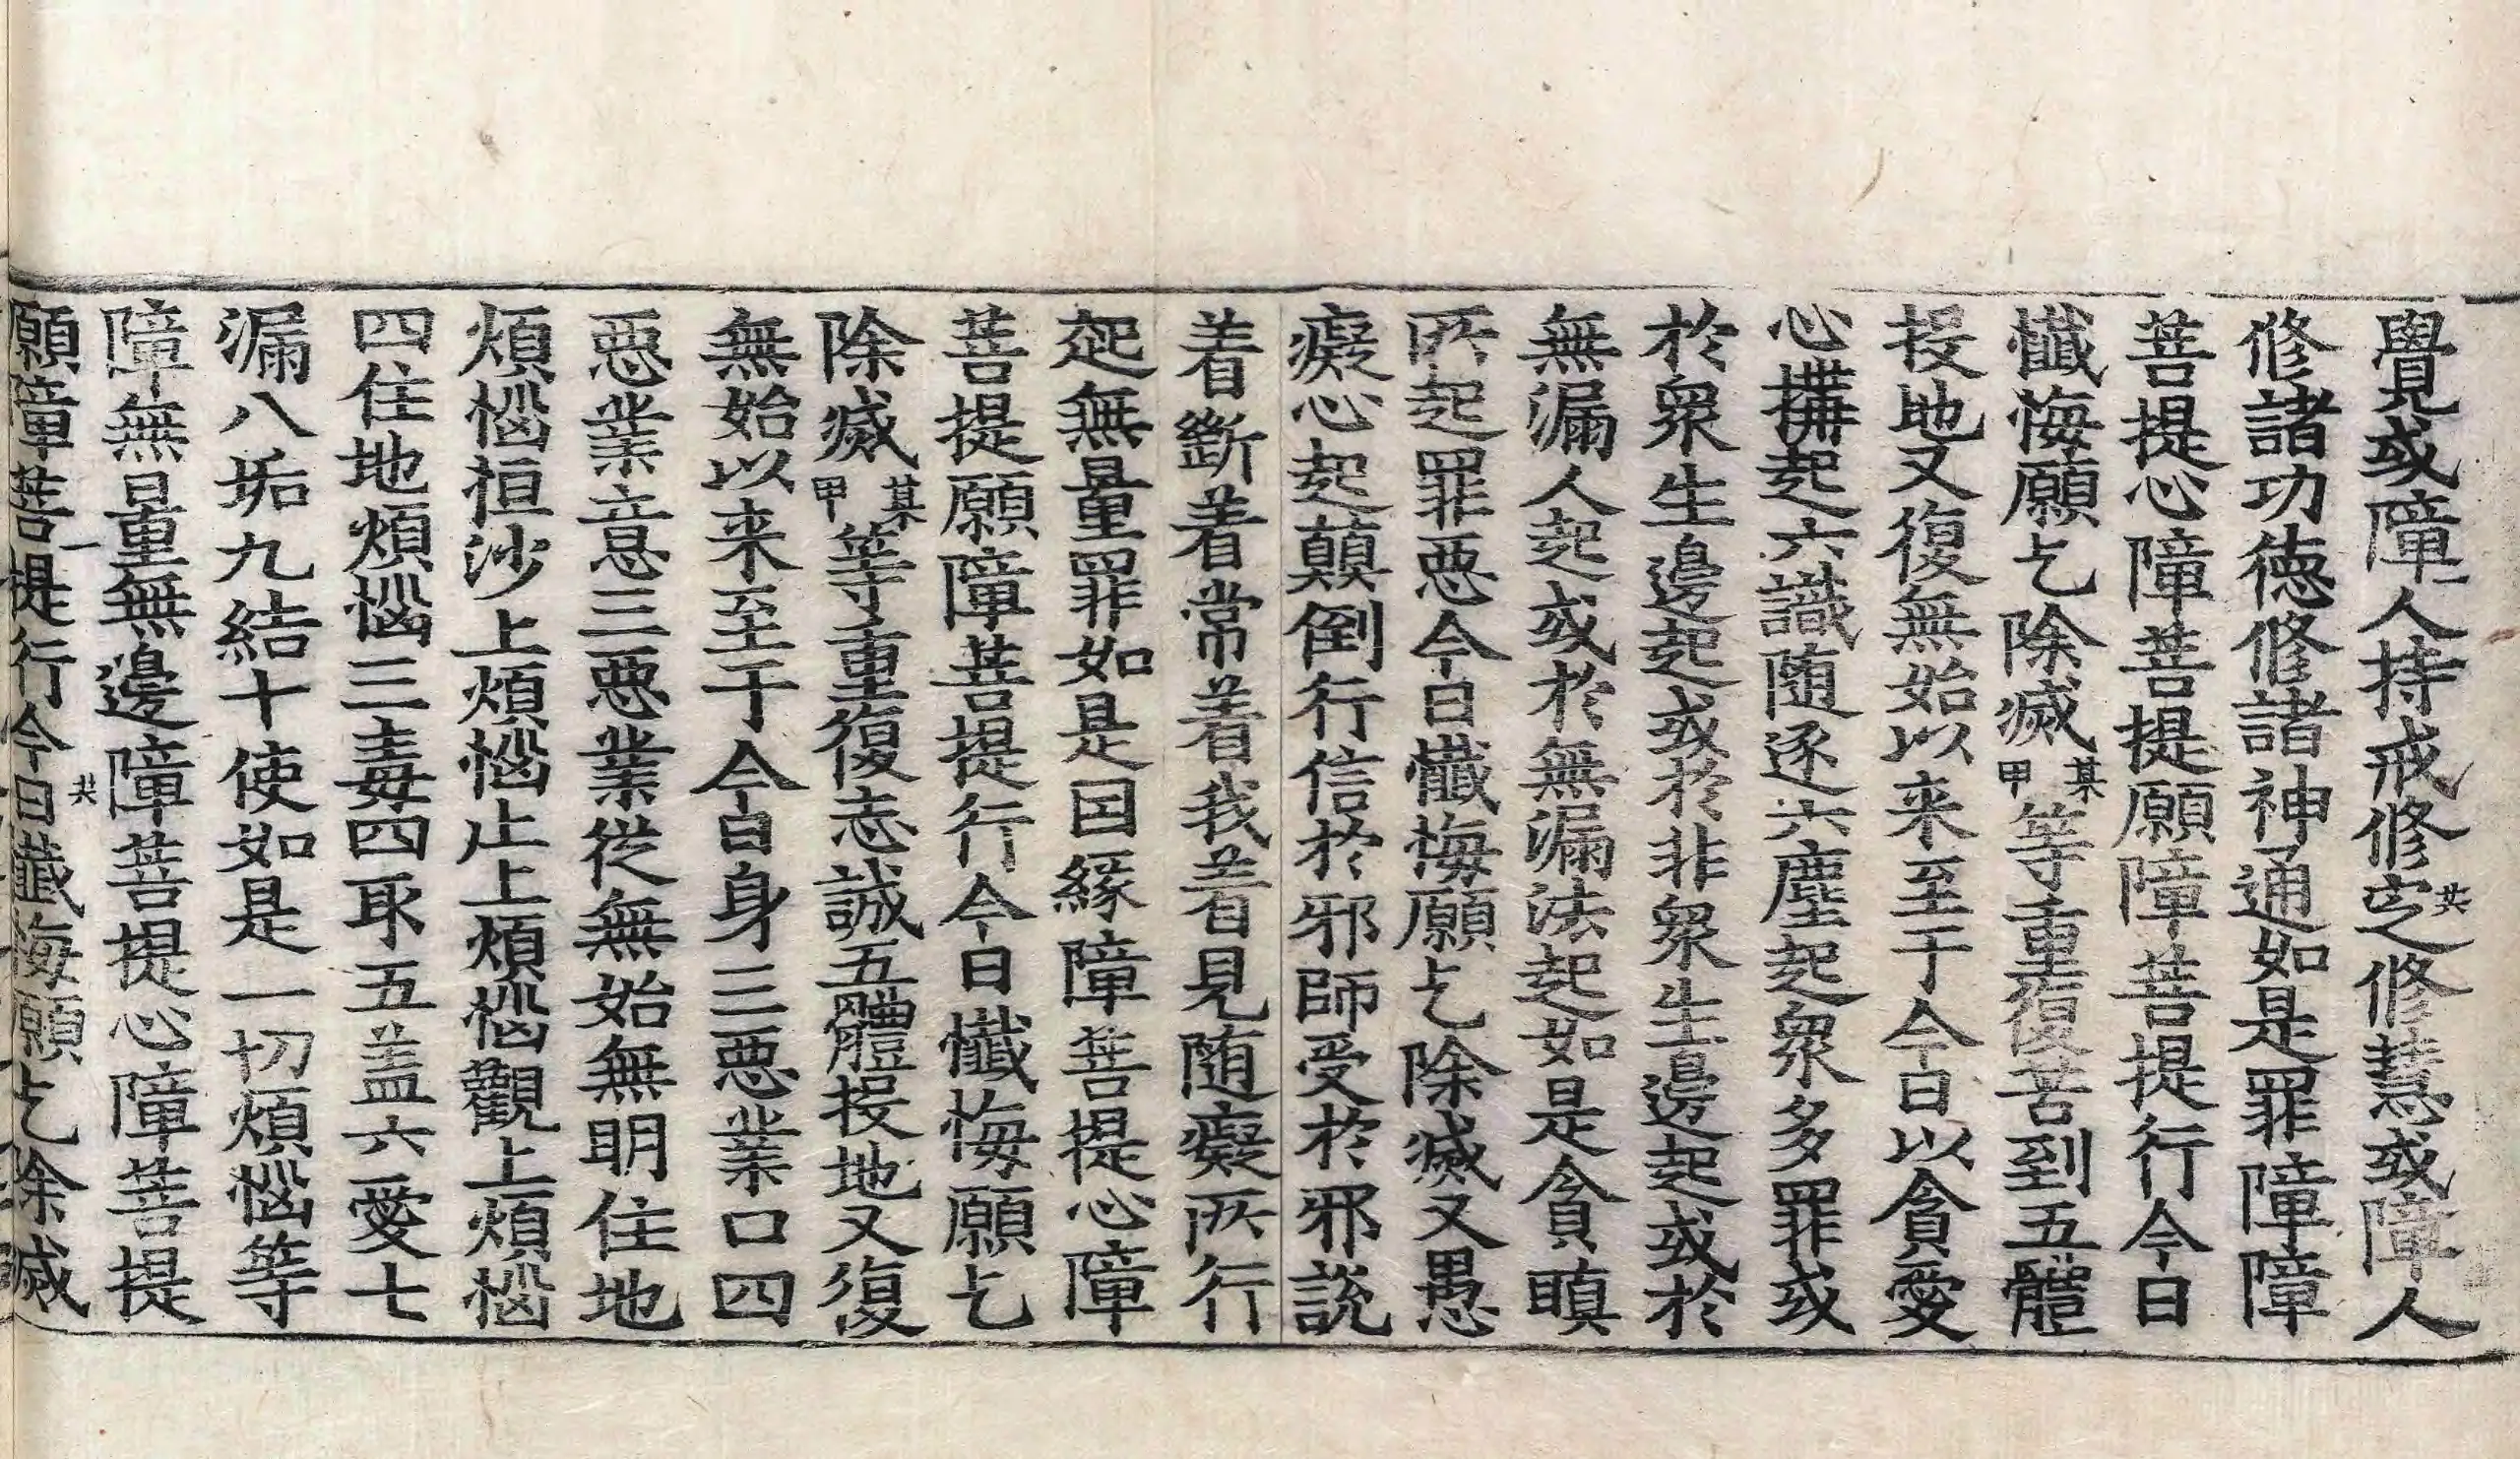 覺或障人持戒修㝎修慧或障人
修諸功徳修諸神通如是罪障障
菩提心障菩提願障菩提行今日
懴悔願乞除滅某甲等重復苦到五體
投地又復無始以来至于今日以貪愛
心搆起六識随逐六塵起衆多罪或
於衆生邊起或於非衆生邊起或於
無漏人起或於無漏法起如是貪瞋
所起罪惡今日懴悔願乞除滅又愚
癡心起顛倒行信於邪師受於邪說
着斷着常着我着見随癡所行
起無量罪如是因緣障菩提心障
菩提願障菩提行今日懴悔願乞
除滅某甲等重復志誠五軆投地又復
無始以来至于今日身三惡業口四
惡業意三惡業從無始無明住地
煩惱恒沙上煩惱止上煩惱觀上煩惱
四住地煩惱三毒四取五盖六愛七
漏八垢九結十使如是一切煩惱等
障無量無邊障菩提心障菩提
願障菩提行今日懴悔願乞除滅